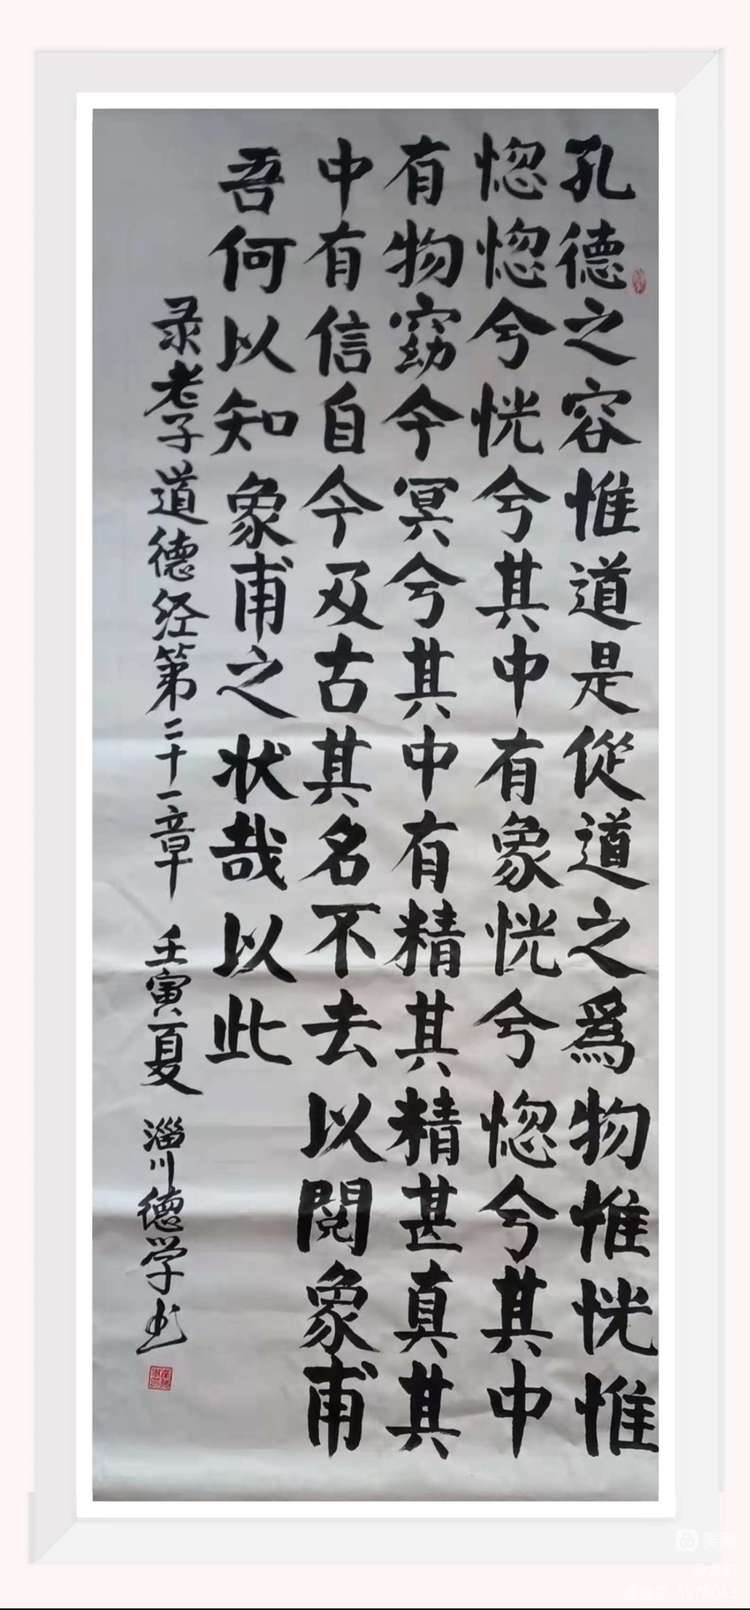 孔德之容惟道是從道之為物惟恍惟
惚惚兮恍兮其中有象恍兮惚兮其中
有物窈今冥兮其中有精其精甚真其
中有信自今及古其名不去以閱象甫
吾何以知象甫之状哉以此
录老子道德经第二十一章 壬寅夏 淄川德学书